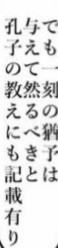 でも一刻の猶予は
与えて然るべきと
孔子の教えにも記載有り